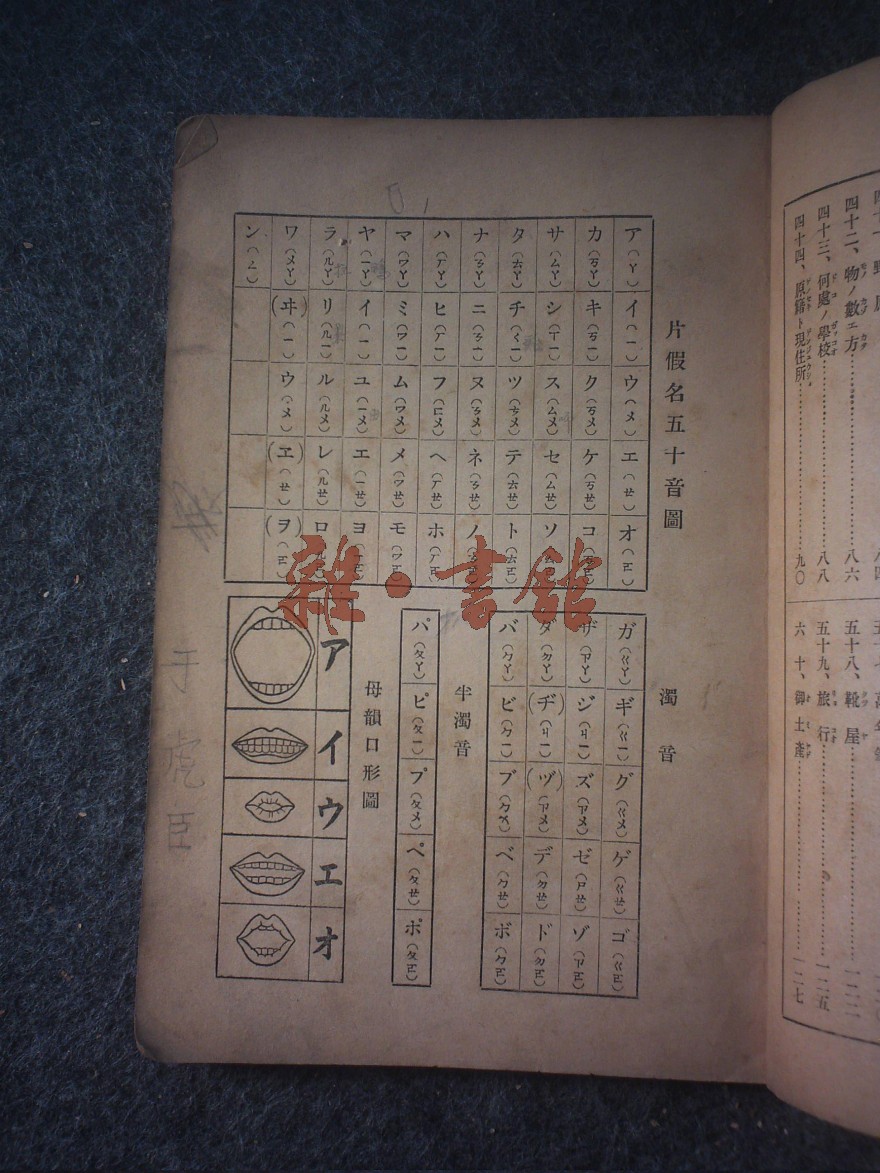 四十二、物ノ數エ方 八六
四十三、何處ノ學校 八八
四十四、原籍ト現住所 九〇
五十八、靴屋
五十九、旅行 一二五
六十、御土產 一二七
片假名五十音圖
ア(ㄚ) イ(ㄧ) ウ(ㄨ) エ(ㄝ) オ(ㄛ)
カ(ㄎㄚ) キ(ㄎㄧ) ク(ㄎㄨ) ケ(ㄎㄝ) コ
サ(ㄙㄚ) シ(ㄒㄧ) ス(ㄙㄨ) セ(ㄙㄝ) ソ
タ(ㄊㄚ) チ(ㄑㄧ) ツ(ㄘㄨ) テ(ㄊㄝ) ト(ㄊㄛ)
ナ(ㄋㄚ) ニ(ㄋㄧ) ヌ(ㄋㄨ) ネ(ㄋㄝ) ノ
ハ(ㄏㄚ) ヒ(ㄏㄧ) フ(ㄈㄨ) ヘ(ㄏㄝ) ホ(ㄏㄛ)
マ(ㄇㄚ) ミ(ㄇㄧ) ム(ㄇㄨ) メ(ㄇㄝ) モ(ㄇㄛ)
ヤ(ㄧㄚ) イ(ㄧ) ユ(ㄧㄨ) エ(ㄧㄝ) ヨ
ラ(ㄌㄚ) リ(ㄌㄧ) ル(ㄌㄨ) レ(ㄌㄝ) ロ
ワ(ㄨㄚ) (ヰ)(ㄧ) ウ(ㄨ) (ヱ)(ㄝ) (ヲ)(ㄛ)
ン(ㄥ)
濁音
ガ(ㄍㄚ) ギ(ㄍㄧ) グ(ㄍㄨ) ゲ(ㄍㄝ) ゴ(ㄍㄛ)
ザ(ㄗㄚ) ジ(ㄐㄧ) ズ(ㄗㄨ) ゼ(ㄗㄝ) ゾ(ㄗㄛ)
ダ(ㄉㄚ) (ヂ)(ㄐㄧ) (ヅ)(ㄗㄨ) デ(ㄉㄝ) ド(ㄉㄛ)
バ(ㄅㄚ) ビ(ㄅㄧ) ブ(ㄅㄨ) ベ(ㄅㄝ) ボ(ㄅㄛ)
半濁音
パ(ㄆㄚ) ピ(ㄆㄧ) プ(ㄆㄨ) ペ(ㄆㄝ) ポ(ㄆㄛ)
母韻口形圖
ア イ ウ エ オ
于虎臣
雜·書館